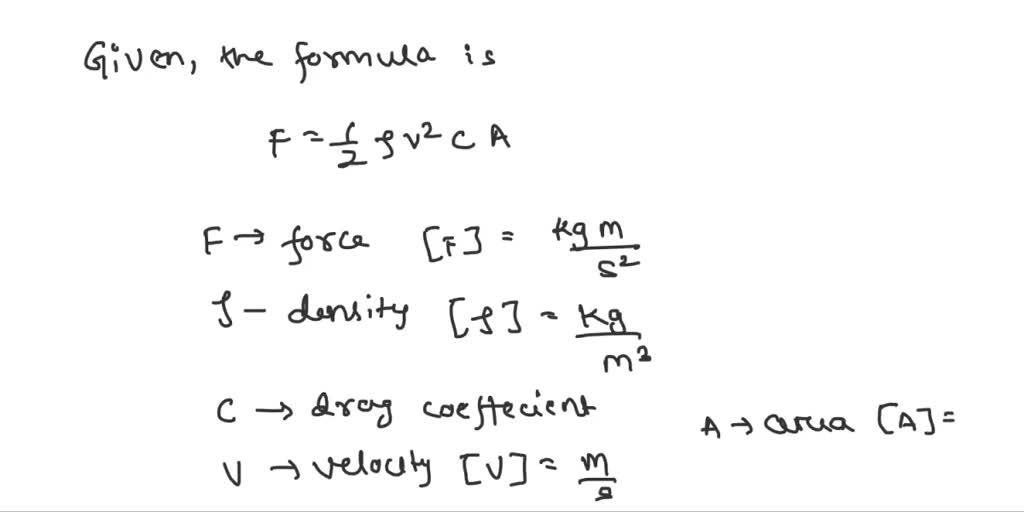 Given, the formula is
F = 1/2 ρ v² C A
F → force [F] = kg m / s²
ρ - density [ρ] = kg / m³
C → drag coeffecient
A → area [A] =
V → velocity [V] = m / s